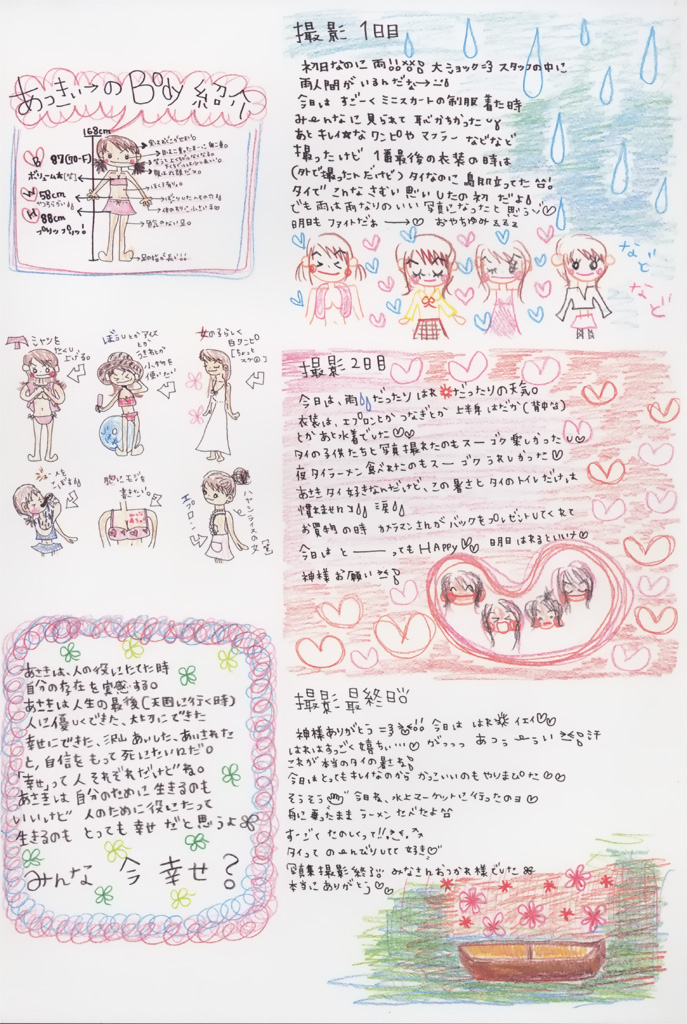 あっきぃ→のBody紹介
168cm
B 87(70-F)
ボリューム大(笑)
W 58cm
H 88cm
プリップリッ!
シャツを
たくし
上げる。
ぼうしとかアイス
とか
うきわとか
小物を
使いたい
女の子らしく
白ワンピ○
[ちょっと
エプロン
ハヤシライスの女(笑)
胸にモジを
書きたい。
あさきは、人の役にたてた時
自分の存在を実感する。
あさきは人生の最後(天国に行く時)
人に優しくできた、大切にできた
幸せにできた、沢山あいした、あいされた
と、自信をもって死にたいんだ。
「幸せ」って人それぞれだけどね。
あさきは自分のために生きるのも
いいけど 人のために役にたって
生きるのも とっても幸せだと思うよ
みんな 今 幸せ?
撮影1日目
初日なのに雨 大ショック=3 スタッフの中に
雨人間がいるんだな→
今日は すごーくミニスカートの制服着た時
み〜んなに見られて恥ずかちかった
あとキレイなワンピやマフラーなどなど
撮ったけど 1番最後の衣装の時は
(外で撮ったんだけど)タイなのに鳥肌立ってた
タイでこんなさむい思いしたの初だよ
でも雨は雨なりのいい写真になったと思う
明日もファイトだぁ → おやちゅみ
など
など
撮影2日目
今日は、雨だったりはれだったりの天気。
衣装は、エプロンとかつなぎとか上半身はだか(背中)
とかあと水着でした
タイの子供たちと写真撮れたのもスーゴク楽しかったし
夜タイラーメン食べれたのもスーゴクうれしかった
あさきタイ好きなんだけど、この暑さとタイのトイレだけは
慣れませんっ 涙
お買物の時 カメラマンさんがバックをプレゼントしてくれて
今日はと──ってもHAPPy 明日はれるといいナ
神様お願い
撮影最終日
神様ありがとう=3 今日ははれ イエイ
はれはすっごく嬉ちぃ… がっっっあつぅーうい 汗
これが本当のタイの暑さ
今日はとってもキレイなのからかっこいいのもやりまちた
そうそう 今日ね、水上マーケットに行ったのヨ
舟に乗ったままラーメンたべたよ
すーごくたのしくって!!
タイってのーんびりしてて好き
写真集撮影終了 みなさんおつかれ様でした
本当にありがとう